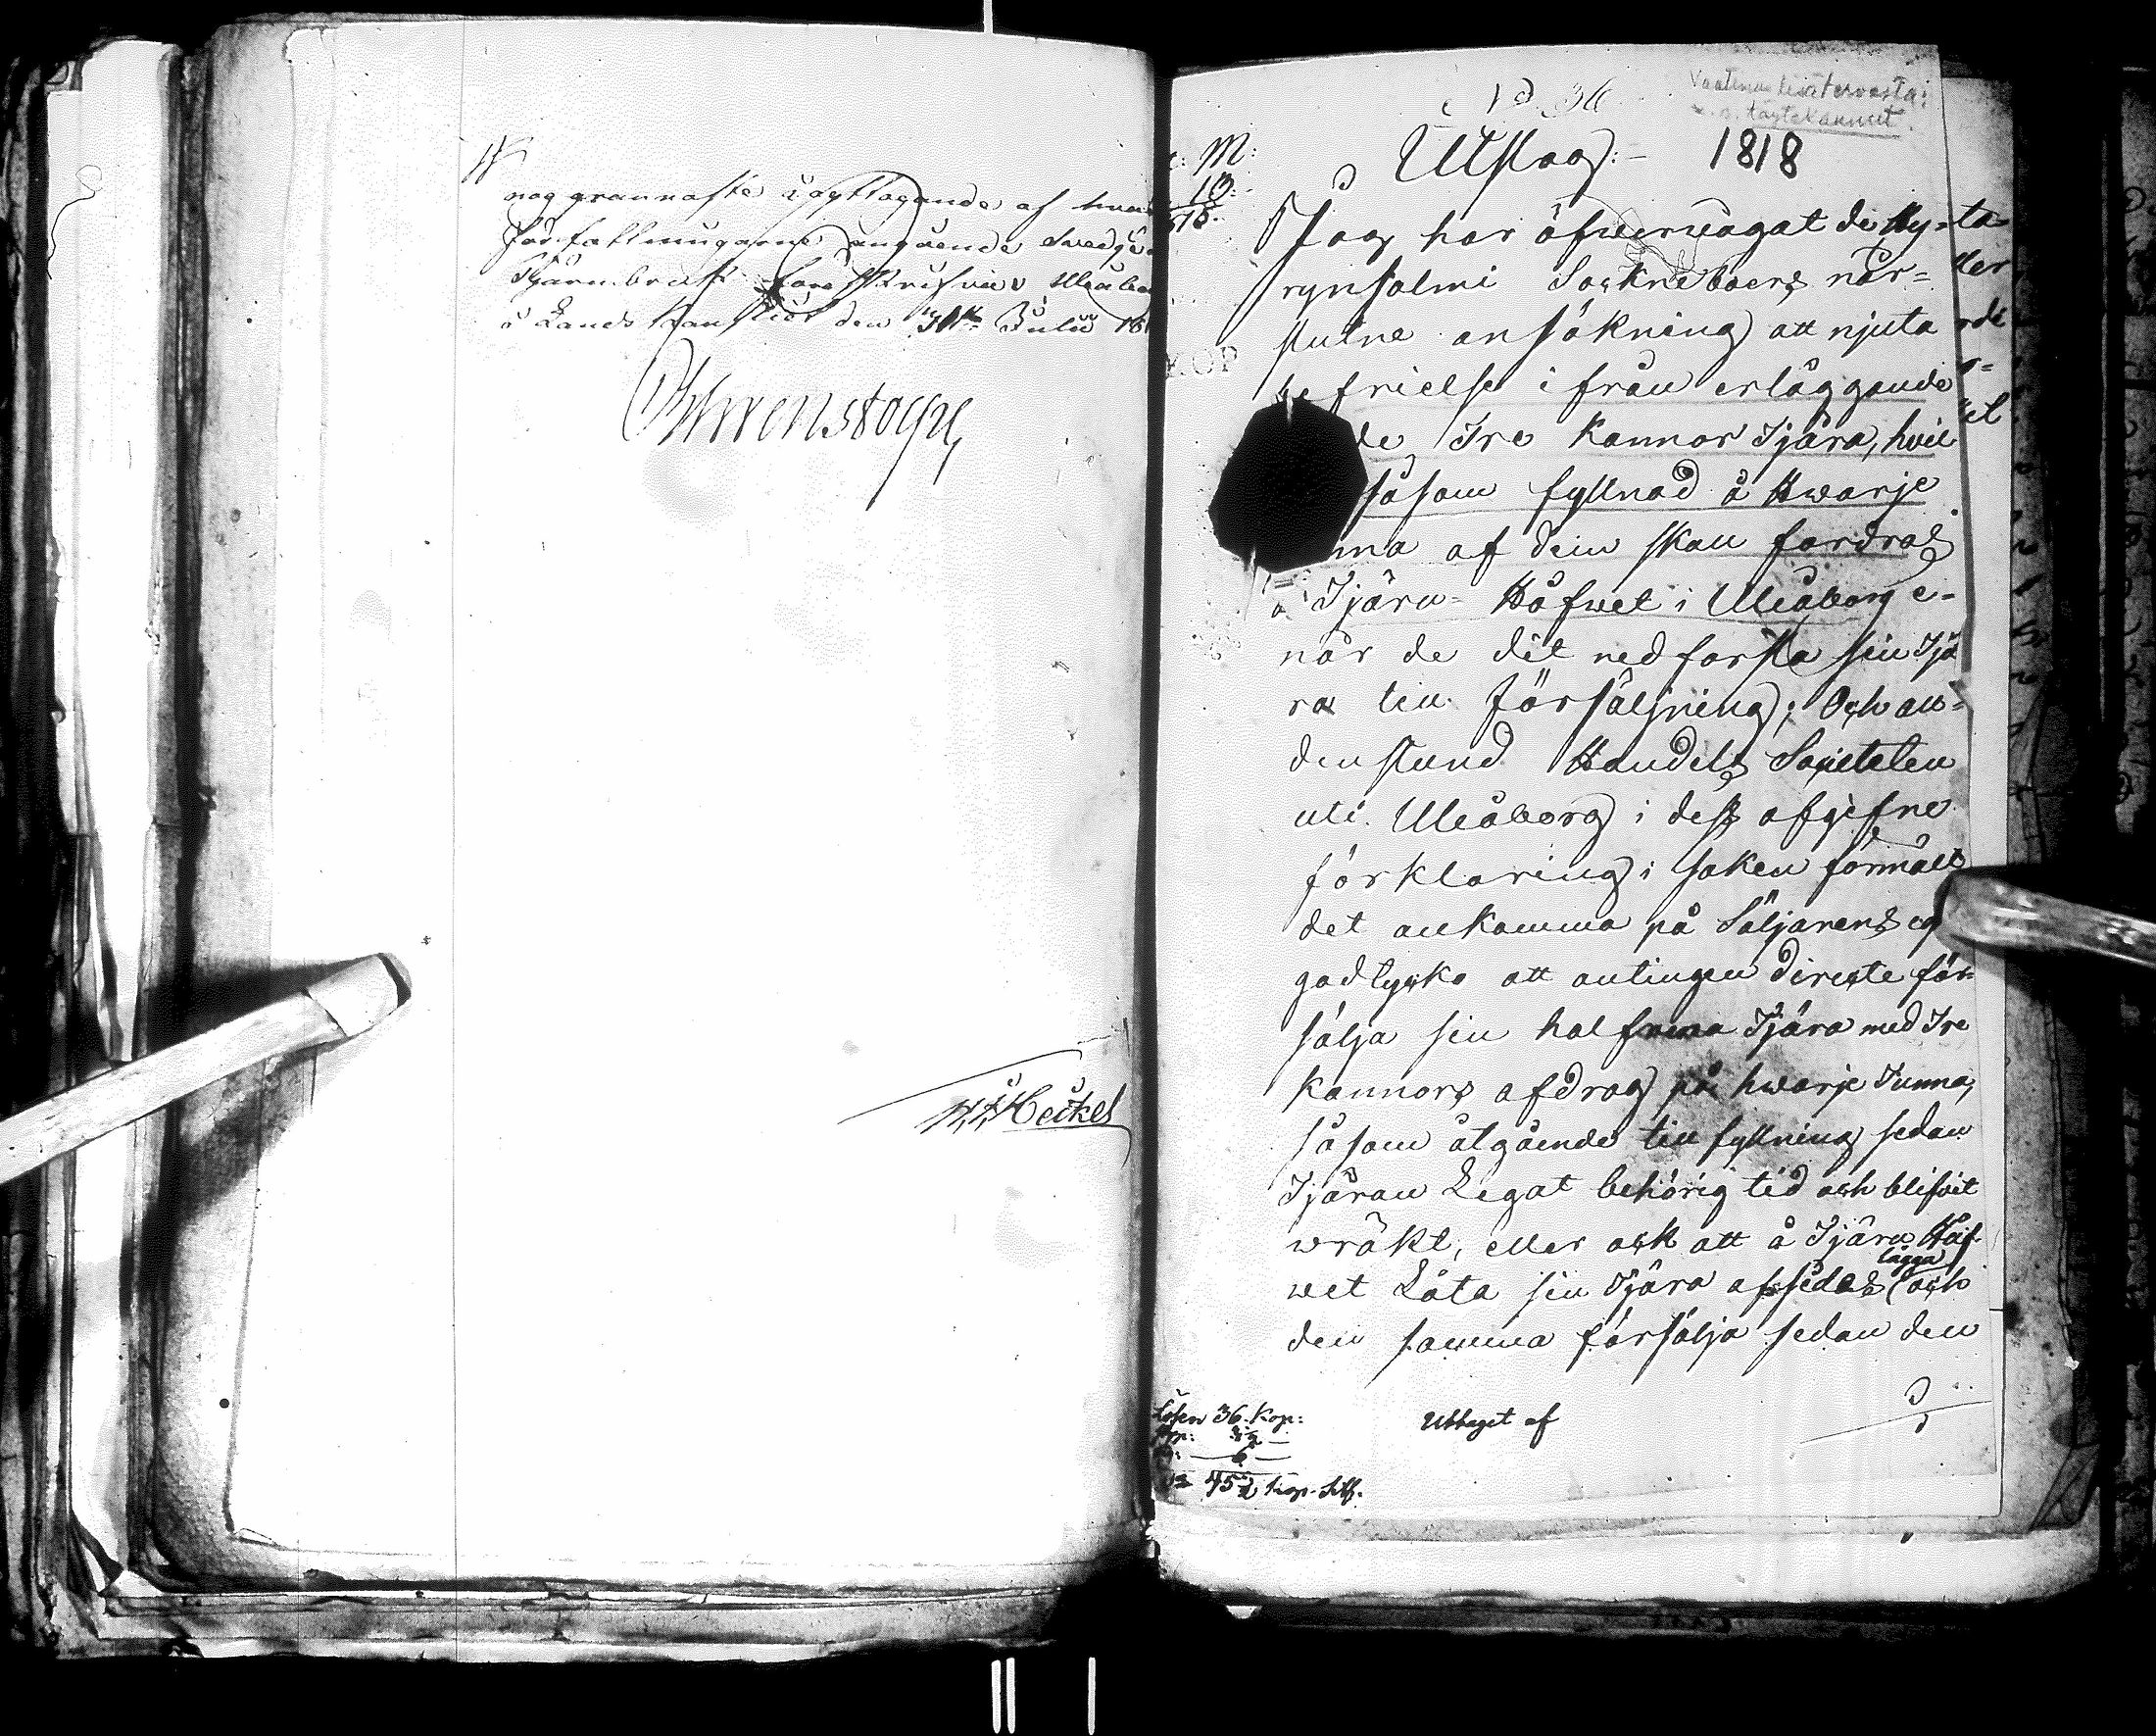 noggrannaste iagttagande af hvad
författningarne angående Swedje
Tjärubrak föreskrifva. Uleåborg
å Lands Canslíet den Julii 18
Ehrenstolpe
H. Heikel
No 36
Utslag:- 1818
Jag har öfvervägat de Hy-
rynsalmi Sockneboers när-
slutne ansökning att njuta
befrielse ifrån erläggande
de Tre Kannor Tjära, hvil
såsom fyllnad å Hwarje
nna af dem skall fordras
å Tjäru-Håfwet i Uleåborg e-
när de dit nedforsla sin Tjä
ra till försäljning; Och all-
denstund Handels Societeten
uti Uleåborg i dess afgifne
förklaring i saken förmält
det ankomma på Säljarens eg
godtycke att antingen directe för-
sälja sin halfrena Tjära med Tre
Kannors afdrag på hwarje Tunna,
såsom åtgående till fyllning sedan
Tjäran Legat behörig tid och blifvit
wräkt, eller ock att å Tjäru Håf-
wet Låta sin Tjära afsides lägga och
den samma försälja sedan den
Lösen 36. Kop:
45½ kop. Silf.
Uttaget af